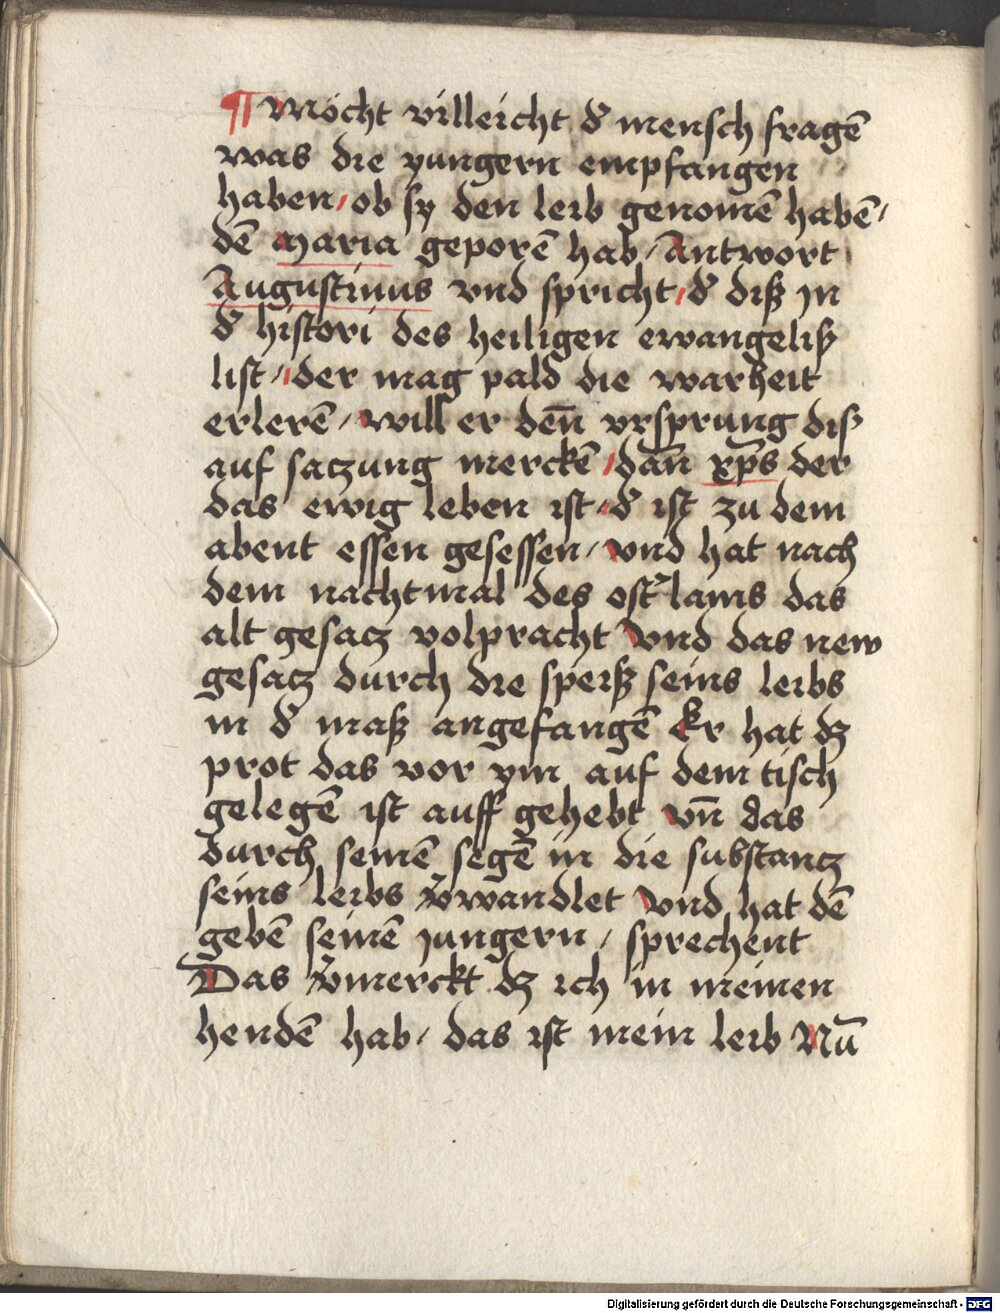 ¶ Möcht villeicht d̕ mensch fragē
was die yungern empfangen
haben / ob sy den leib genomē habē /
dē maria geporē hab / Antwort
Augustinus vnd spricht / d̕ diß jn
d̕ histori des heiligen ewangeliß
list / der mag pald die warheit
erlerē / will er den̄ vrsprung diß
auf saczung merckē / dan̄ xp̄s der
das ewig leben ist / d̕ ist zu dem
abent essen gesessen / vnd hat nach
dem nachtmal des ost̕lams das
alt gesacz volpracht Vnd das new
gesacz durch die speiß seins leibs
in d̕ maß angefangē Er hat dz
prot das vor ym auf dem tisch
gelegē ist auff gehebt vn̄ das
durch seinē segē in die substancz
seins leibs v̕wandlet vnd hat dē
gebē seinē jungern / sprechent
Das v̕merckt dz ich in meinen
hendē hab / das ist mein leib Nū
Digitalisierung gefördert durch die Deutsche Forschungsgemeinschaft - DFG